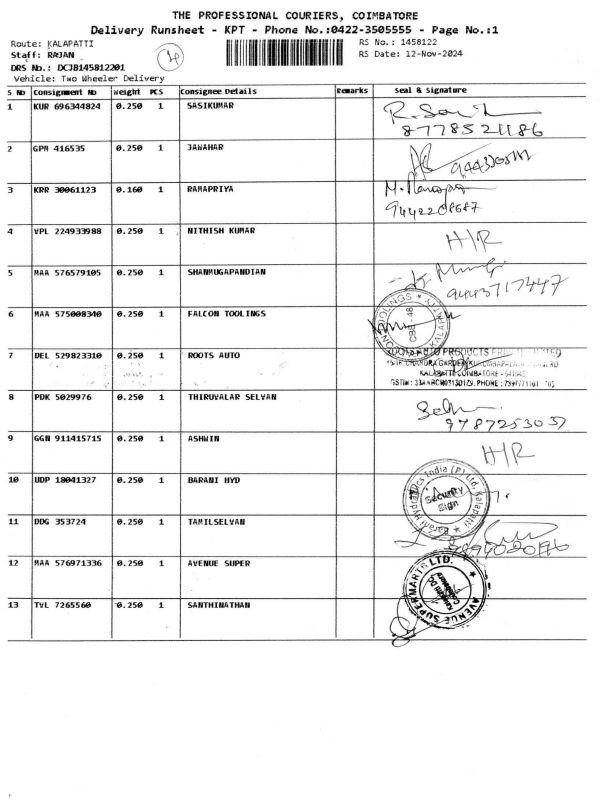 THE PROFESSIONAL COURIERS, COIMBATORE
Delivery Runsheet - KPT - Phone No.:0422-3505555 - Page No.:1
Route: KALAPATTI
RS No.: 1458122
Staff: RAJAN
RS Date: 12-Nov-2024
DRS No.: DCJB145812201
Vehicle: Two Wheeler Delivery
S No Consignment No Weight PCS Consignee Details Remarks Seal & Signature
1 KUR 696344824 0.250 1 SASIKUMAR
8778521186
2 GPR 416535 0.250 1 JAWAHAR
3 KRR 30061123 0.160 1 RAMAPRIYA
9442208687
4 VPL 224933988 0.250 1 NITHISH KUMAR H/R
5 MAA 576579105 0.250 1 SHANMUGAPANDIAN
9443717447
6 MAA 575008340 0.250 1 FALCON TOOLINGS
CBE - 48
7 DEL 529823310 0.250 1 ROOTS AUTO
AUTO PRODUCTS
8 PDK 5029976 0.250 1 THIRUVALAR SELVAN
9 GGN 911415715 0.250 1 ASHWIN H/R
10 UDP 18041327 0.250 1 BARANI HYD
Security Sign
11 DDG 353724 0.250 1 TAMILSELVAN
12 MAA 576971336 0.250 1 AVENUE SUPER
AVENUE SUPERMARTS LTD.
13 TVL 7265560 0.250 1 SANTHINATHAN